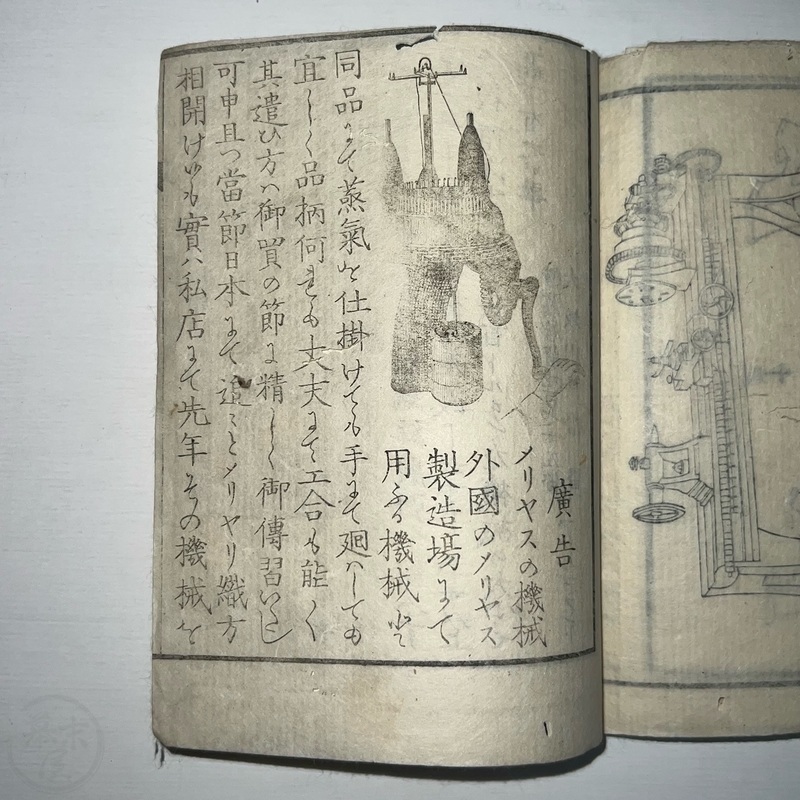 廣告
メリヤスの機械
外國のメリヤス
製造場にて
用ゐる機械と
同品にて蒸氣を仕掛けても手にて廻はしても
宜しく品柄何れも大丈夫にて工合も能く
其遣ひ方ハ御買の節に精しく御傳習いたし
可申且つ當節日本にて追々とメリヤリ織方
相開け候も實ハ私店にて先年その機械を